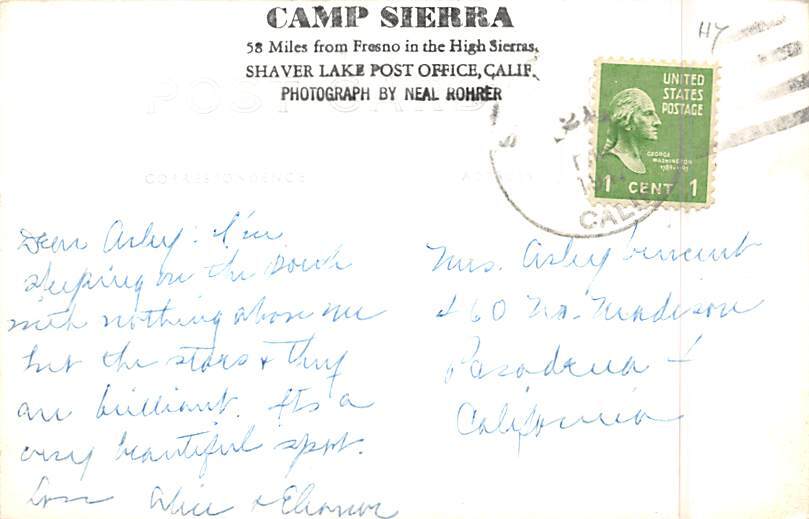 CAMP SIERRA
58 Miles from Fresno in the High Sierras,
SHAVER LAKE POST OFFICE, CALIF.
PHOTOGRAPH BY NEAL ROHRER
POST CARD
CORRESPONDENCE
117
UNITED
STATES
POSTAGE
GEORGE
WASHINGTON
1 CENT 1
CALIF
Dear Arley: I'm
sleeping on the porch
with nothing above me
but the stars & they
are brilliant. Its a
very beautiful spot.
Love Alice & Eleanor
Mrs. Arley Vincent
460 No. Madison
Pasadena
California